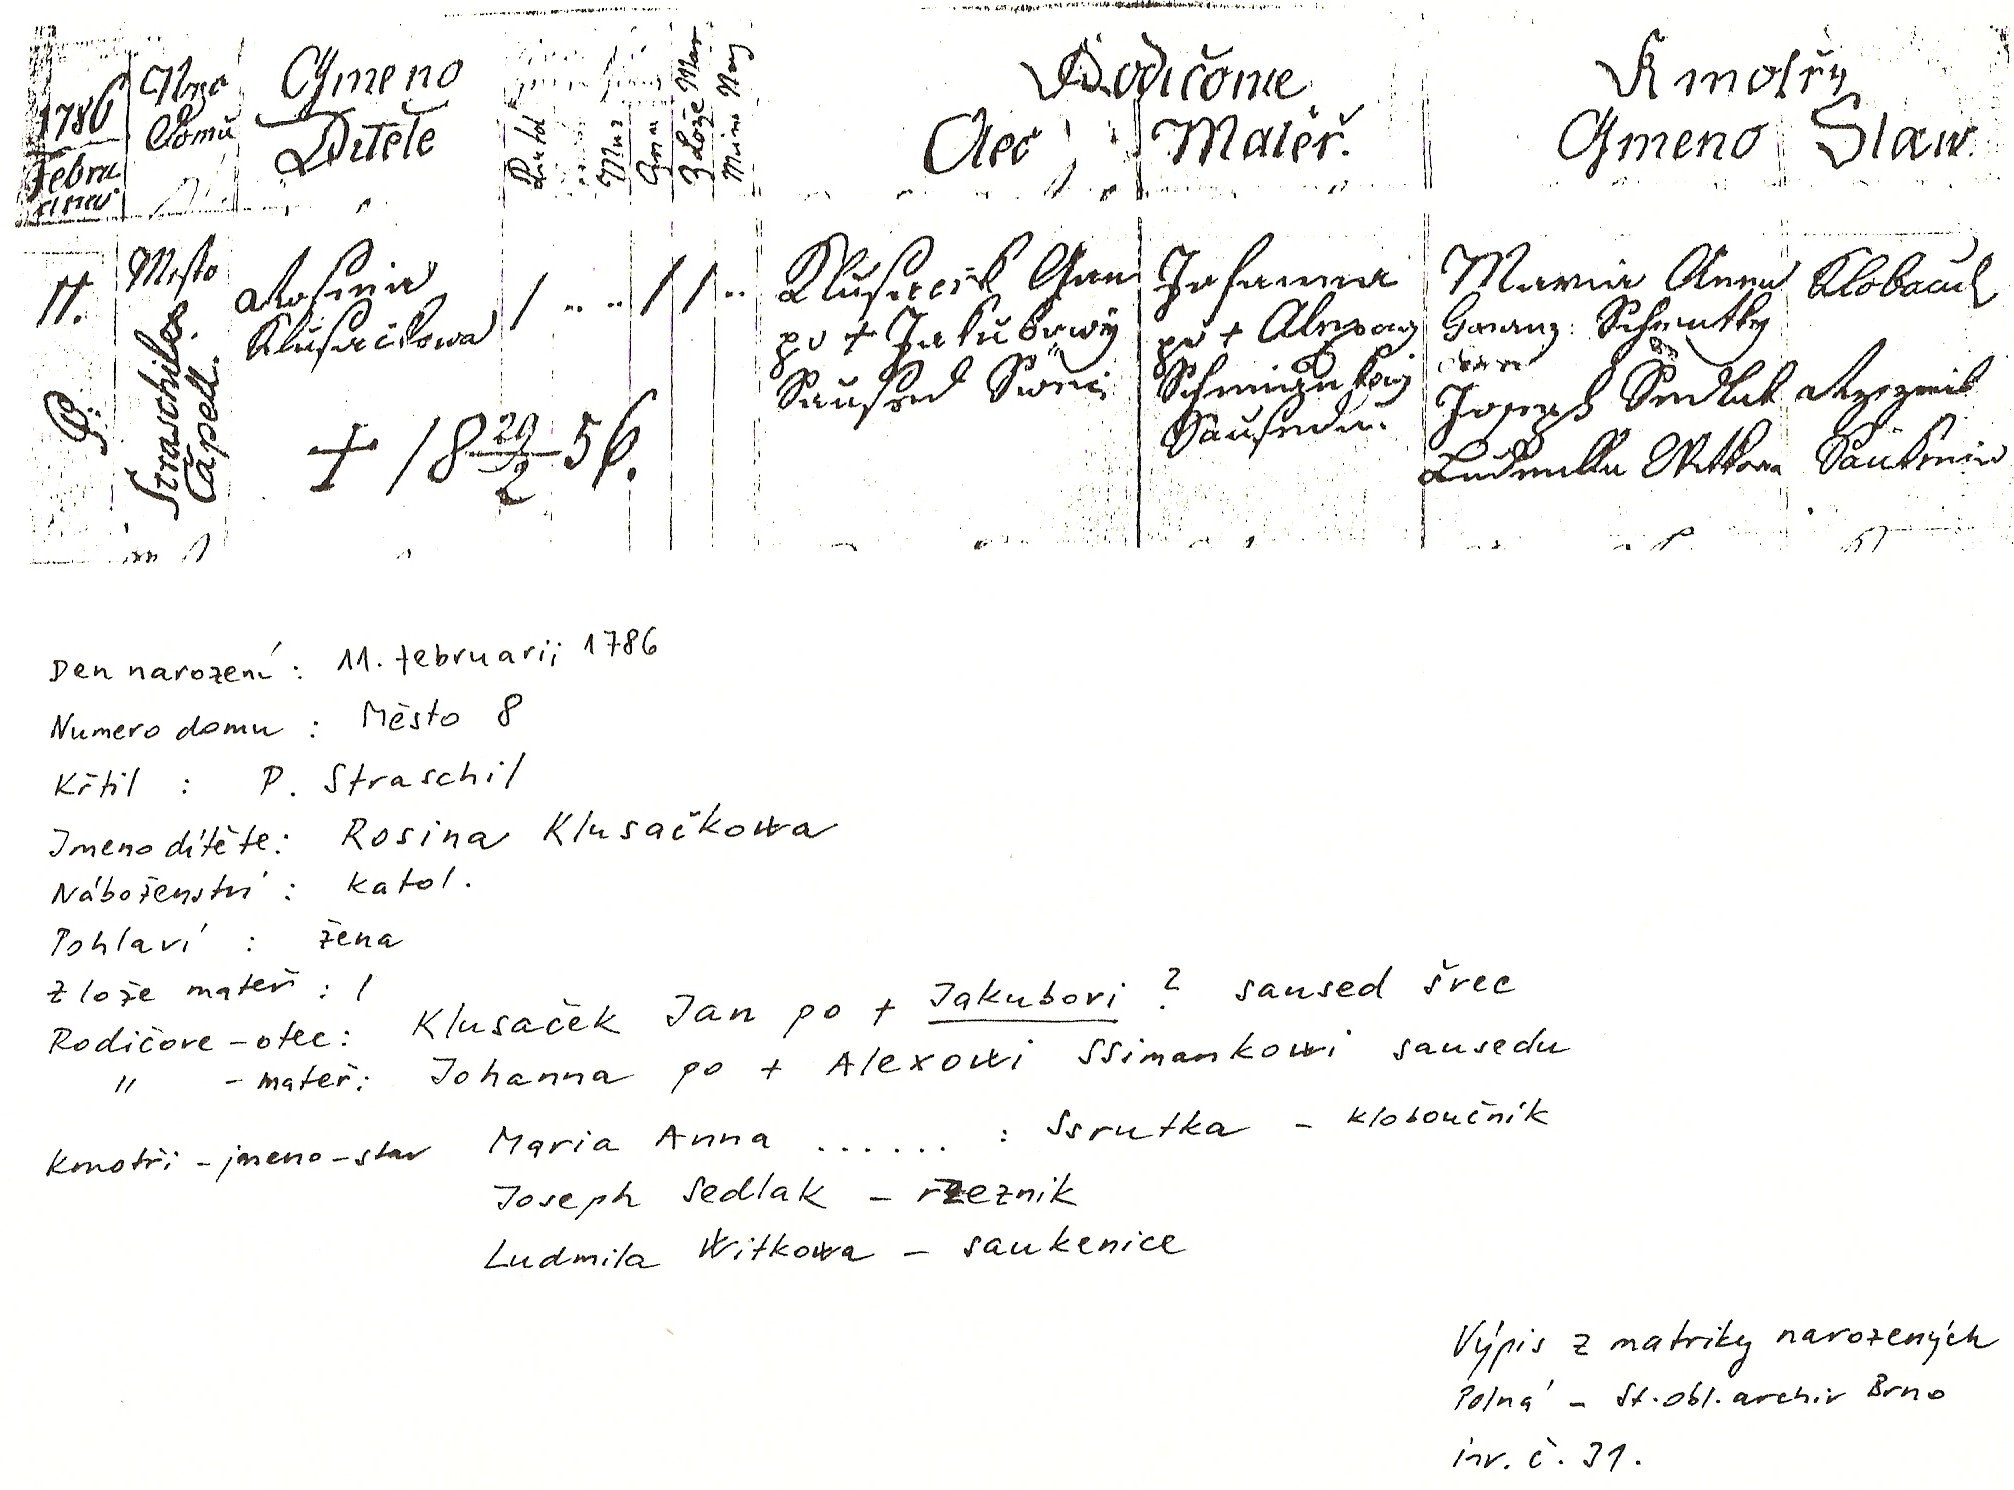 1786
Februarius
Nro Domu
Gmeno
Ditěte
Zlože Mat
Rodičowe
Otec
Mateř.
Kmotřy
Gmeno
Staw
11.
8.
Mesto
Straschil
Capell.
Rosina
Klusačkowa
Klusaček Gan
po + Jakubowy
Saused Swec
Johanna
po + Alexowy
Schimankowy
Sausedu.
Maria Anna
Joseph Sedlak
Rzeznik
Ludmilla Witkowa
Saukenice
+ 18 29/2 56.
Den narození : 11. februarii 1786
Numero domu : Město 8
Křtil : P. Straschil
Jmeno dítěte: Rosina Klusačkowa
Náboženství : katol.
Pohlaví : žena
Zlože mateř : /
Rodičove - otec: Klusaček Jan po + Jakubovi ? saused švec
" - mateř: Johanna po + Alexowi SSimankowi sausedu
Kmotři - jmeno - stav Maria Anna ...... : Ssrutka - kloboučník
Joseph Sedlak - rzeznik
Ludmila Witkowa - saukenice
Výpis z matriky narozených
Polná - St. obl. archiv Brno
inv. č. 31.